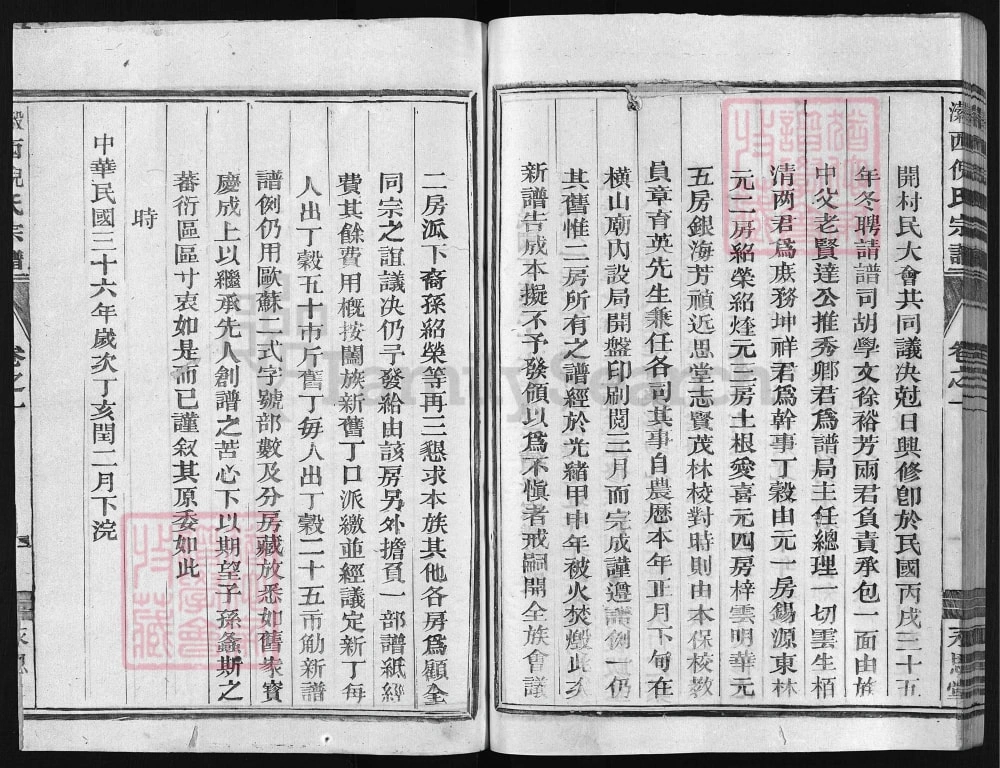 瀠西倪氏宗譜 卷之一 永思堂
開村民大會共同議决尅日興修卽於民國丙戌三十五
年冬聘請譜司胡學文徐裕芳兩君負責承包一面由族
中父老賢達公推秀卿君爲譜局主任總理一切雲生栢
清两君爲庶務坤祥君爲幹事丁穀由元一房錫源東林
元二房紹榮紹烽元三房土根愛喜元四房梓雲明華元
五房銀海芳禎近思堂志賢茂林校對時則由本保校教
員章育英先生兼任各司其事自農歷本年正月下旬在
橫山廟內設局開盤印刷閱三月而完成謹遵譜例一仍
其舊惟二房所有之譜經於光緒甲申年被火焚燬此次
新譜告成本擬不予發領以爲不愼者戒嗣開全族會議
二房派下裔孫紹榮等再三懇求本族其他各房爲顧全
同宗之誼議决仍予發給由該房另外擔負一部譜紙經
費其餘費用概按闔族新舊丁口派繳並經議定新丁每
人出丁穀五十市斤舊丁每人出丁穀二十五市觔新譜
譜例仍用歐蘇二式字號部數及分房藏放悉如舊家寳
慶成上以繼承先人創譜之苦心下以期望子孫螽斯之
蕃衍區區寸衷如是而已謹叙其原委如此
時
中華民國三十六年歲次丁亥閏二月下浣
西倪氏宗譜 卷之一 永思